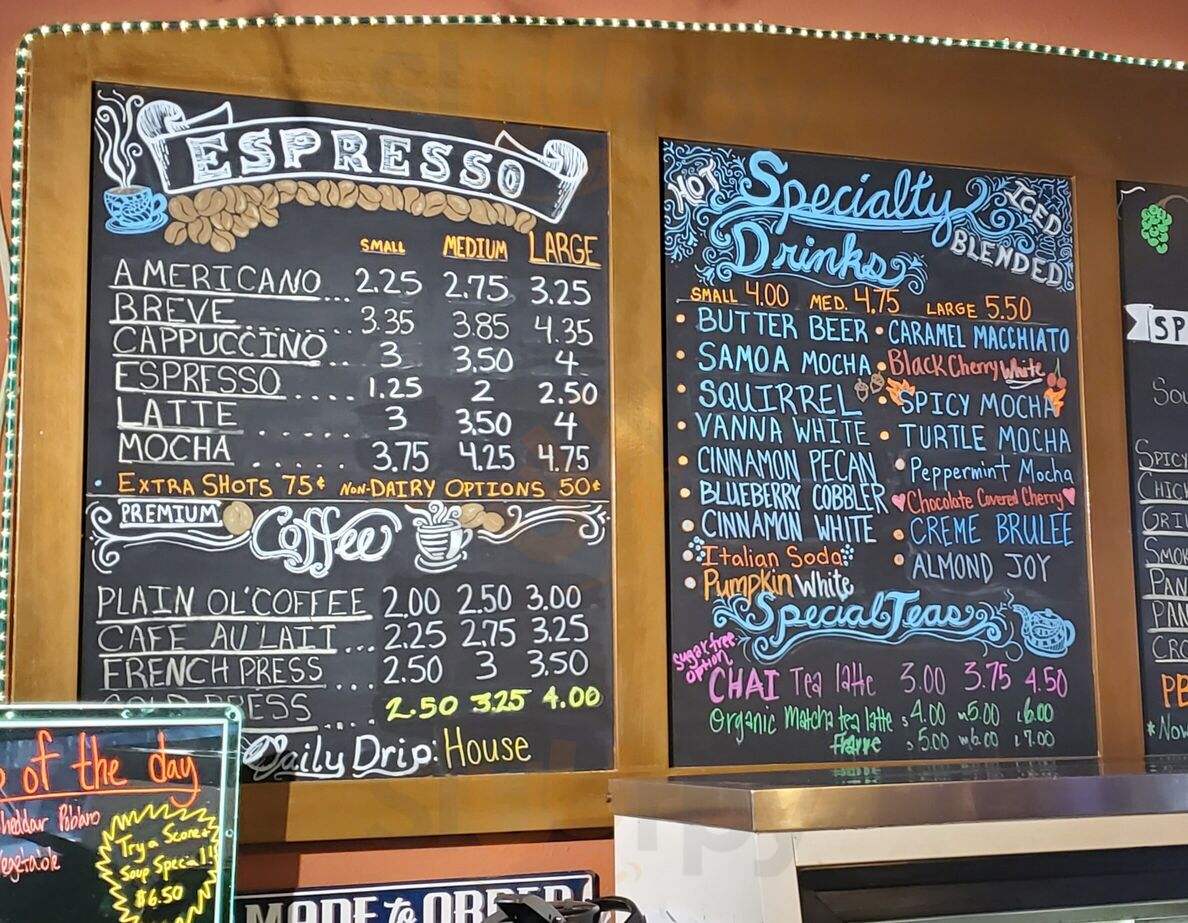 ESPRESSO
SMALL MEDIUM LARGE
AMERICANO... 2.25 2.75 3.25
BREVE......... 3.35 3.85 4.35
CAPPUCCINO.. 3 3.50 4
ESPRESSO.... 1.25 2 2.50
LATTE ...... 3 3.50 4
MOCHA ..... 3.75 4.25 4.75
EXTRA SHOTS 75¢ NON-DAIRY OPTIONS 50¢
PREMIUM Coffee
PLAIN OL' COFFEE 2.00 2.50 3.00
CAFE AU LAIT ... 2.25 2.75 3.25
FRENCH PRESS ... 2.50 3 3.50
COLD PRESS .... 2.50 3.25 4.00
Daily Drip: House
HOT Specialty Drinks ICED BLENDED
SMALL 4.00 MED. 4.75 LARGE 5.50
• BUTTER BEER • CARAMEL MACCHIATO
• SAMOA MOCHA • Black Cherry White
• SQUIRREL • SPICY MOCHA
• VANNA WHITE • TURTLE MOCHA
• CINNAMON PECAN • Peppermint Mocha
• BLUEBERRY COBBLER Chocolate Covered Cherry
• CINNAMON WHITE • CREME BRULEE
• Italian Soda • ALMOND JOY
• Pumpkin White
Special Teas
sugar free option
CHAI Tea latte 3.00 3.75 4.50
Organic Matcha tea latte s4.00 m5.00 L6.00
Frappe s5.00 m6.00 L7.00
SP
Sou
SPICY
CHICK
GRIL
SMOK
PAN
PAN
CRO
PB
*Now
of the day
heddar Poblano
Vegetable
Try a Score+
Soup Special!!
$6.50
MADE to ORDER